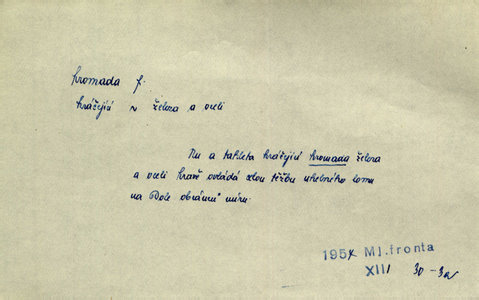 hromada f.
kráčející ~ železa a oceli
Nu a tahleta kráčející hromada železa
a oceli hravě ovládá celou těžbu uhelného lomu
na Dole obránců míru.
195 Ml.fronta
XIII 30